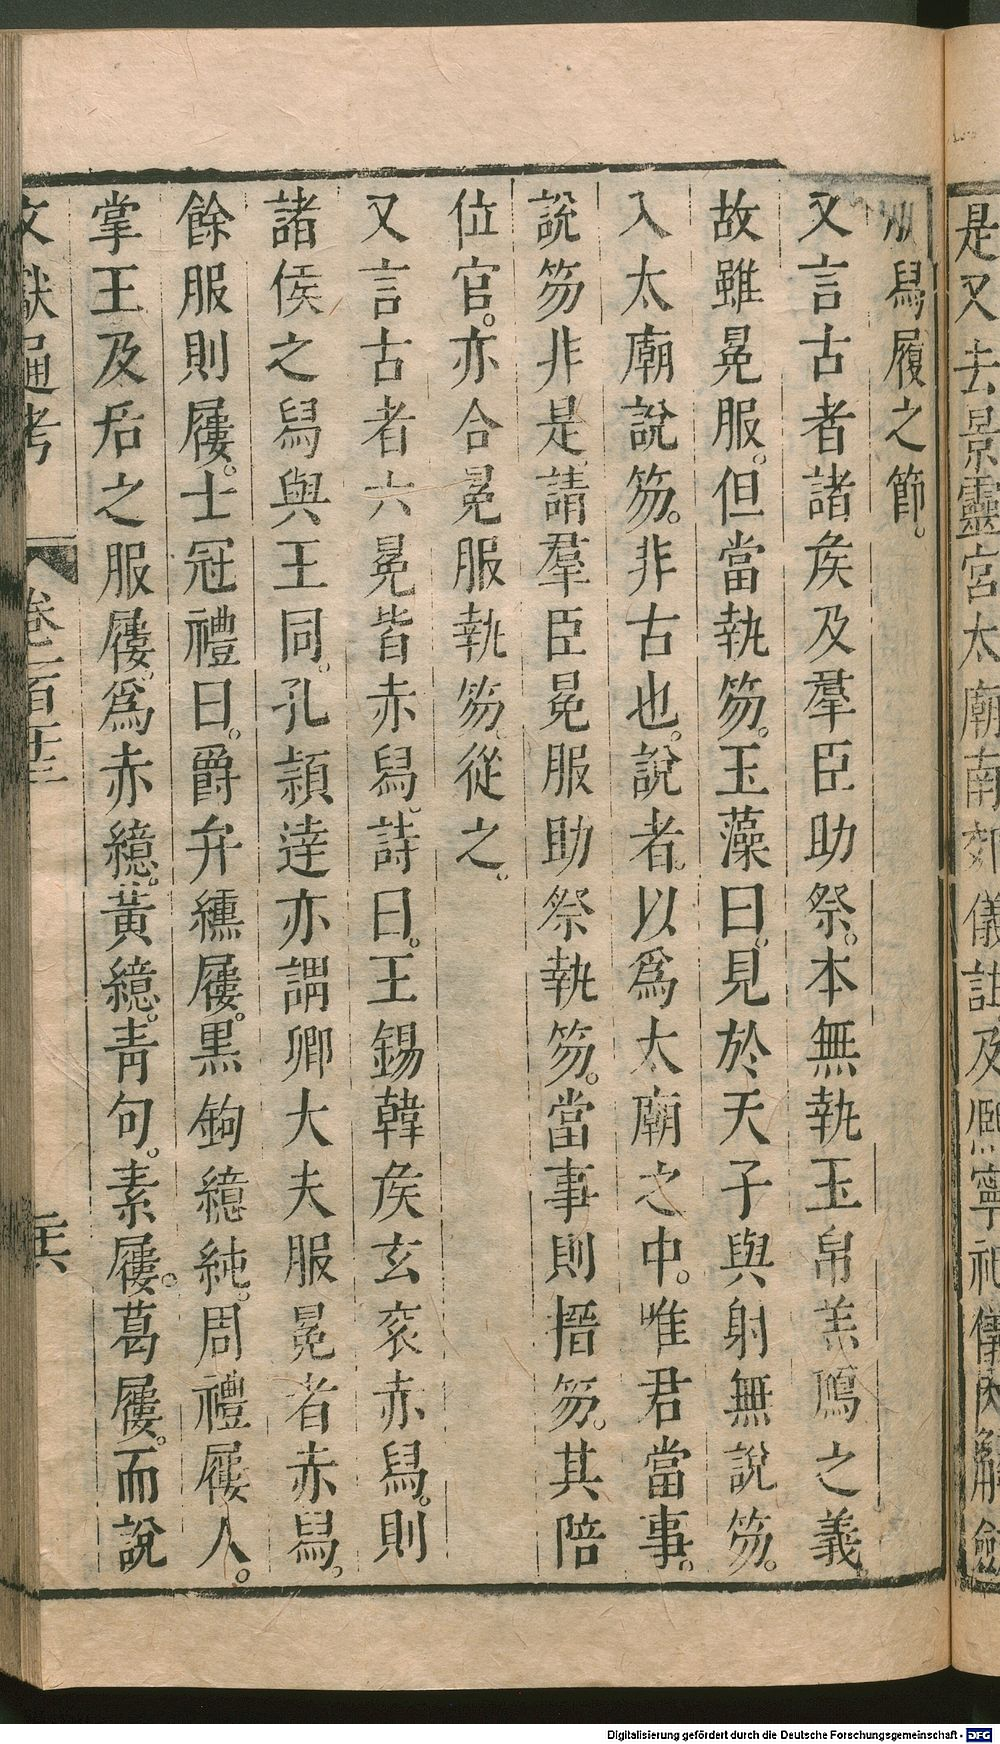 是又去景靈宮太廟南郊儀註及熙寧祀儀內解劒
舄履之節。
又言古者諸矦及羣臣助祭。本無執玉帛羔鴈之義。
故雖冕服。但當執笏。玉藻曰。見於天子與射無說笏。
入太廟說笏。非古也。說者。以爲太廟之中。唯君當事。
說笏非是。請羣臣冕服助祭執笏。當事則搢笏。其陪
位官。亦合冕服執笏。從之。
又言古者六冕皆赤舄。詩曰。王錫韓矦玄衮赤舄。則
諸侯之舄與王同。孔穎達亦謂卿大夫服冕者赤舄。
餘服則屨。士冠禮曰。爵弁纁屨。黒鉤繶純。周禮屨人。
掌王及后之服屨。爲赤繶。黃繶。青句。素屨。葛屨。而說
文獻通考 卷一百十三
Digitalisierung gefördert durch die Deutsche Forschungsgemeinschaft - DFG